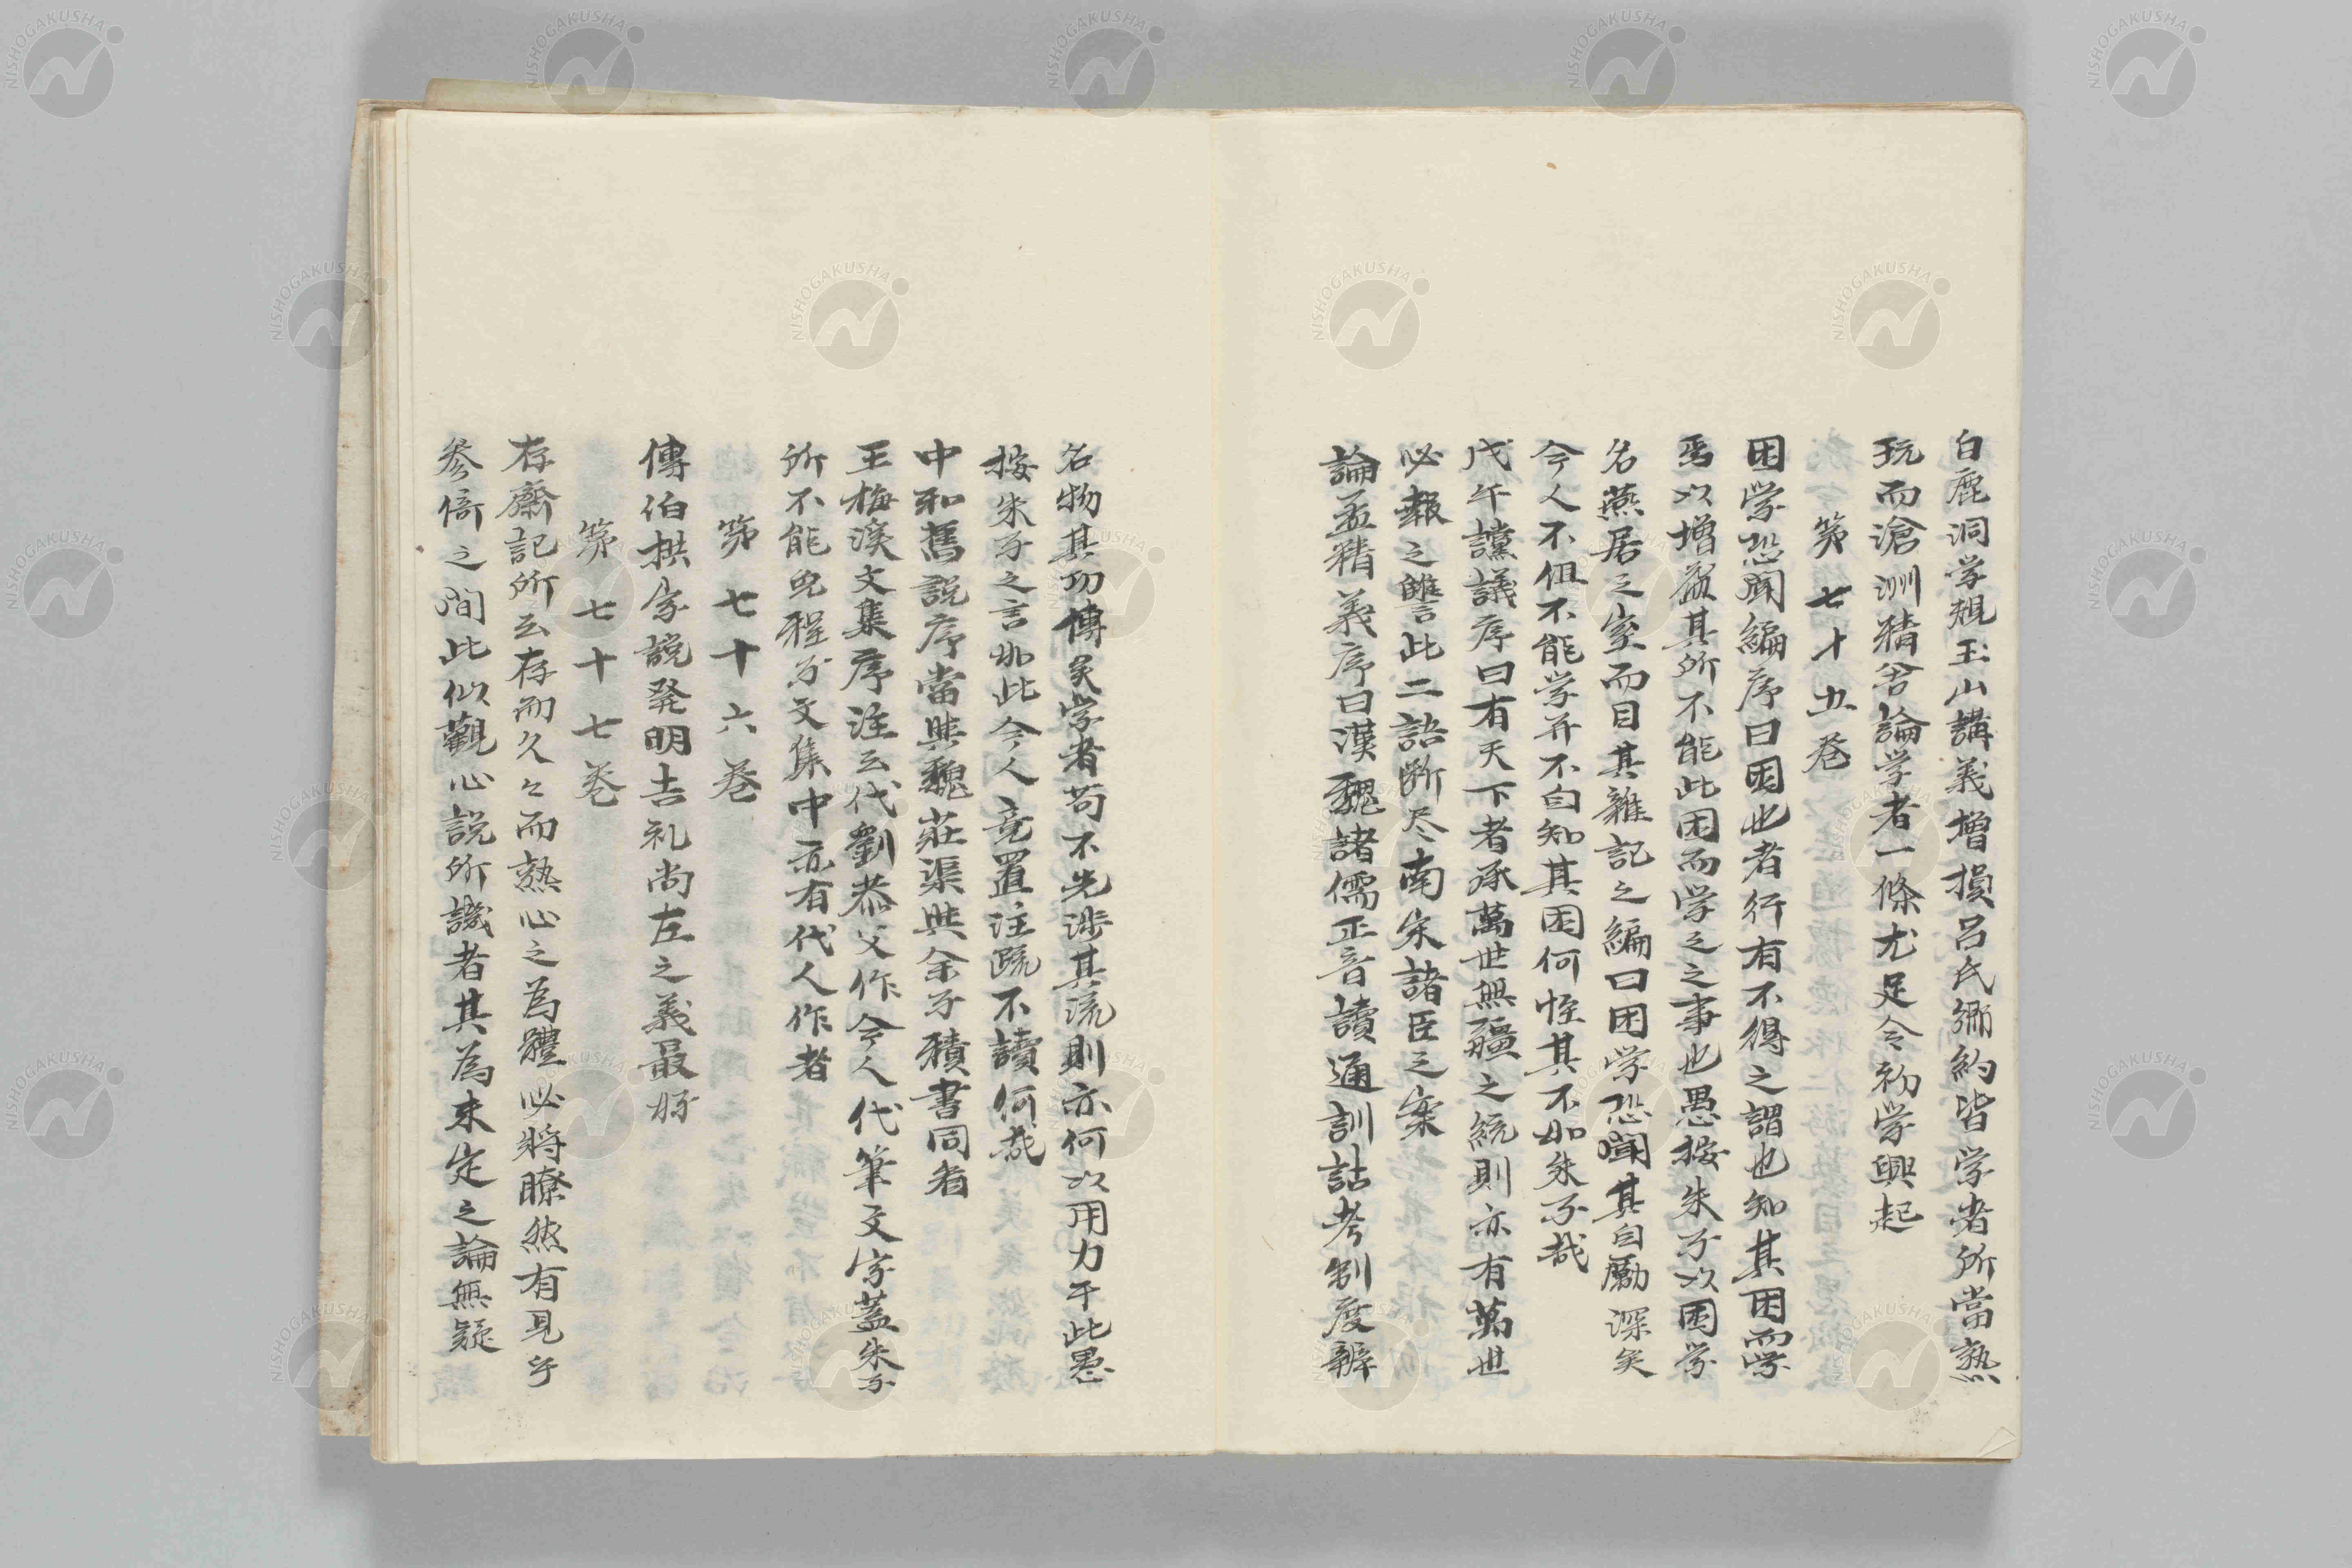 白鹿洞学規玉山講義増損呂氏郷約皆学者所當熟
玩而滄洲精舎論学者一條尤足令初学興起
第七十五巻
困学恐聞編序曰困也者行有不得之謂也知其困而学
焉以増益其所不能此困而学之之事也愚按朱子以困学
名燕居之室而目其雜記之編曰困学恐聞其自勵深矣
今人不但不能学并不自知其困何恠其不如朱子哉
戊午讜議序曰有天下者承萬世無疆之統則亦有萬世
必報之讐此二語断尽南宋諸臣之案
論孟精義序曰漢魏諸儒正音讀通訓詁考制度辨
名物其功博矣学者苟不先渉其流則亦何以用力于此愚
按朱子之言如此今人竟置注疏不讀何哉
中和舊説序當與魏莊渠與余子積書同看
王梅溪文集序注云代劉恭父作今人代筆文字蓋朱子
所不能免程子文集中亦有代人作者
第七十六巻
傳伯拱字説発明吉礼尚左之義最好
第七十七巻
存齋記所云存而久々而熟心之為體必將瞭然有見乎
参倚之間此似觀心説所譏者其為未定之論無疑